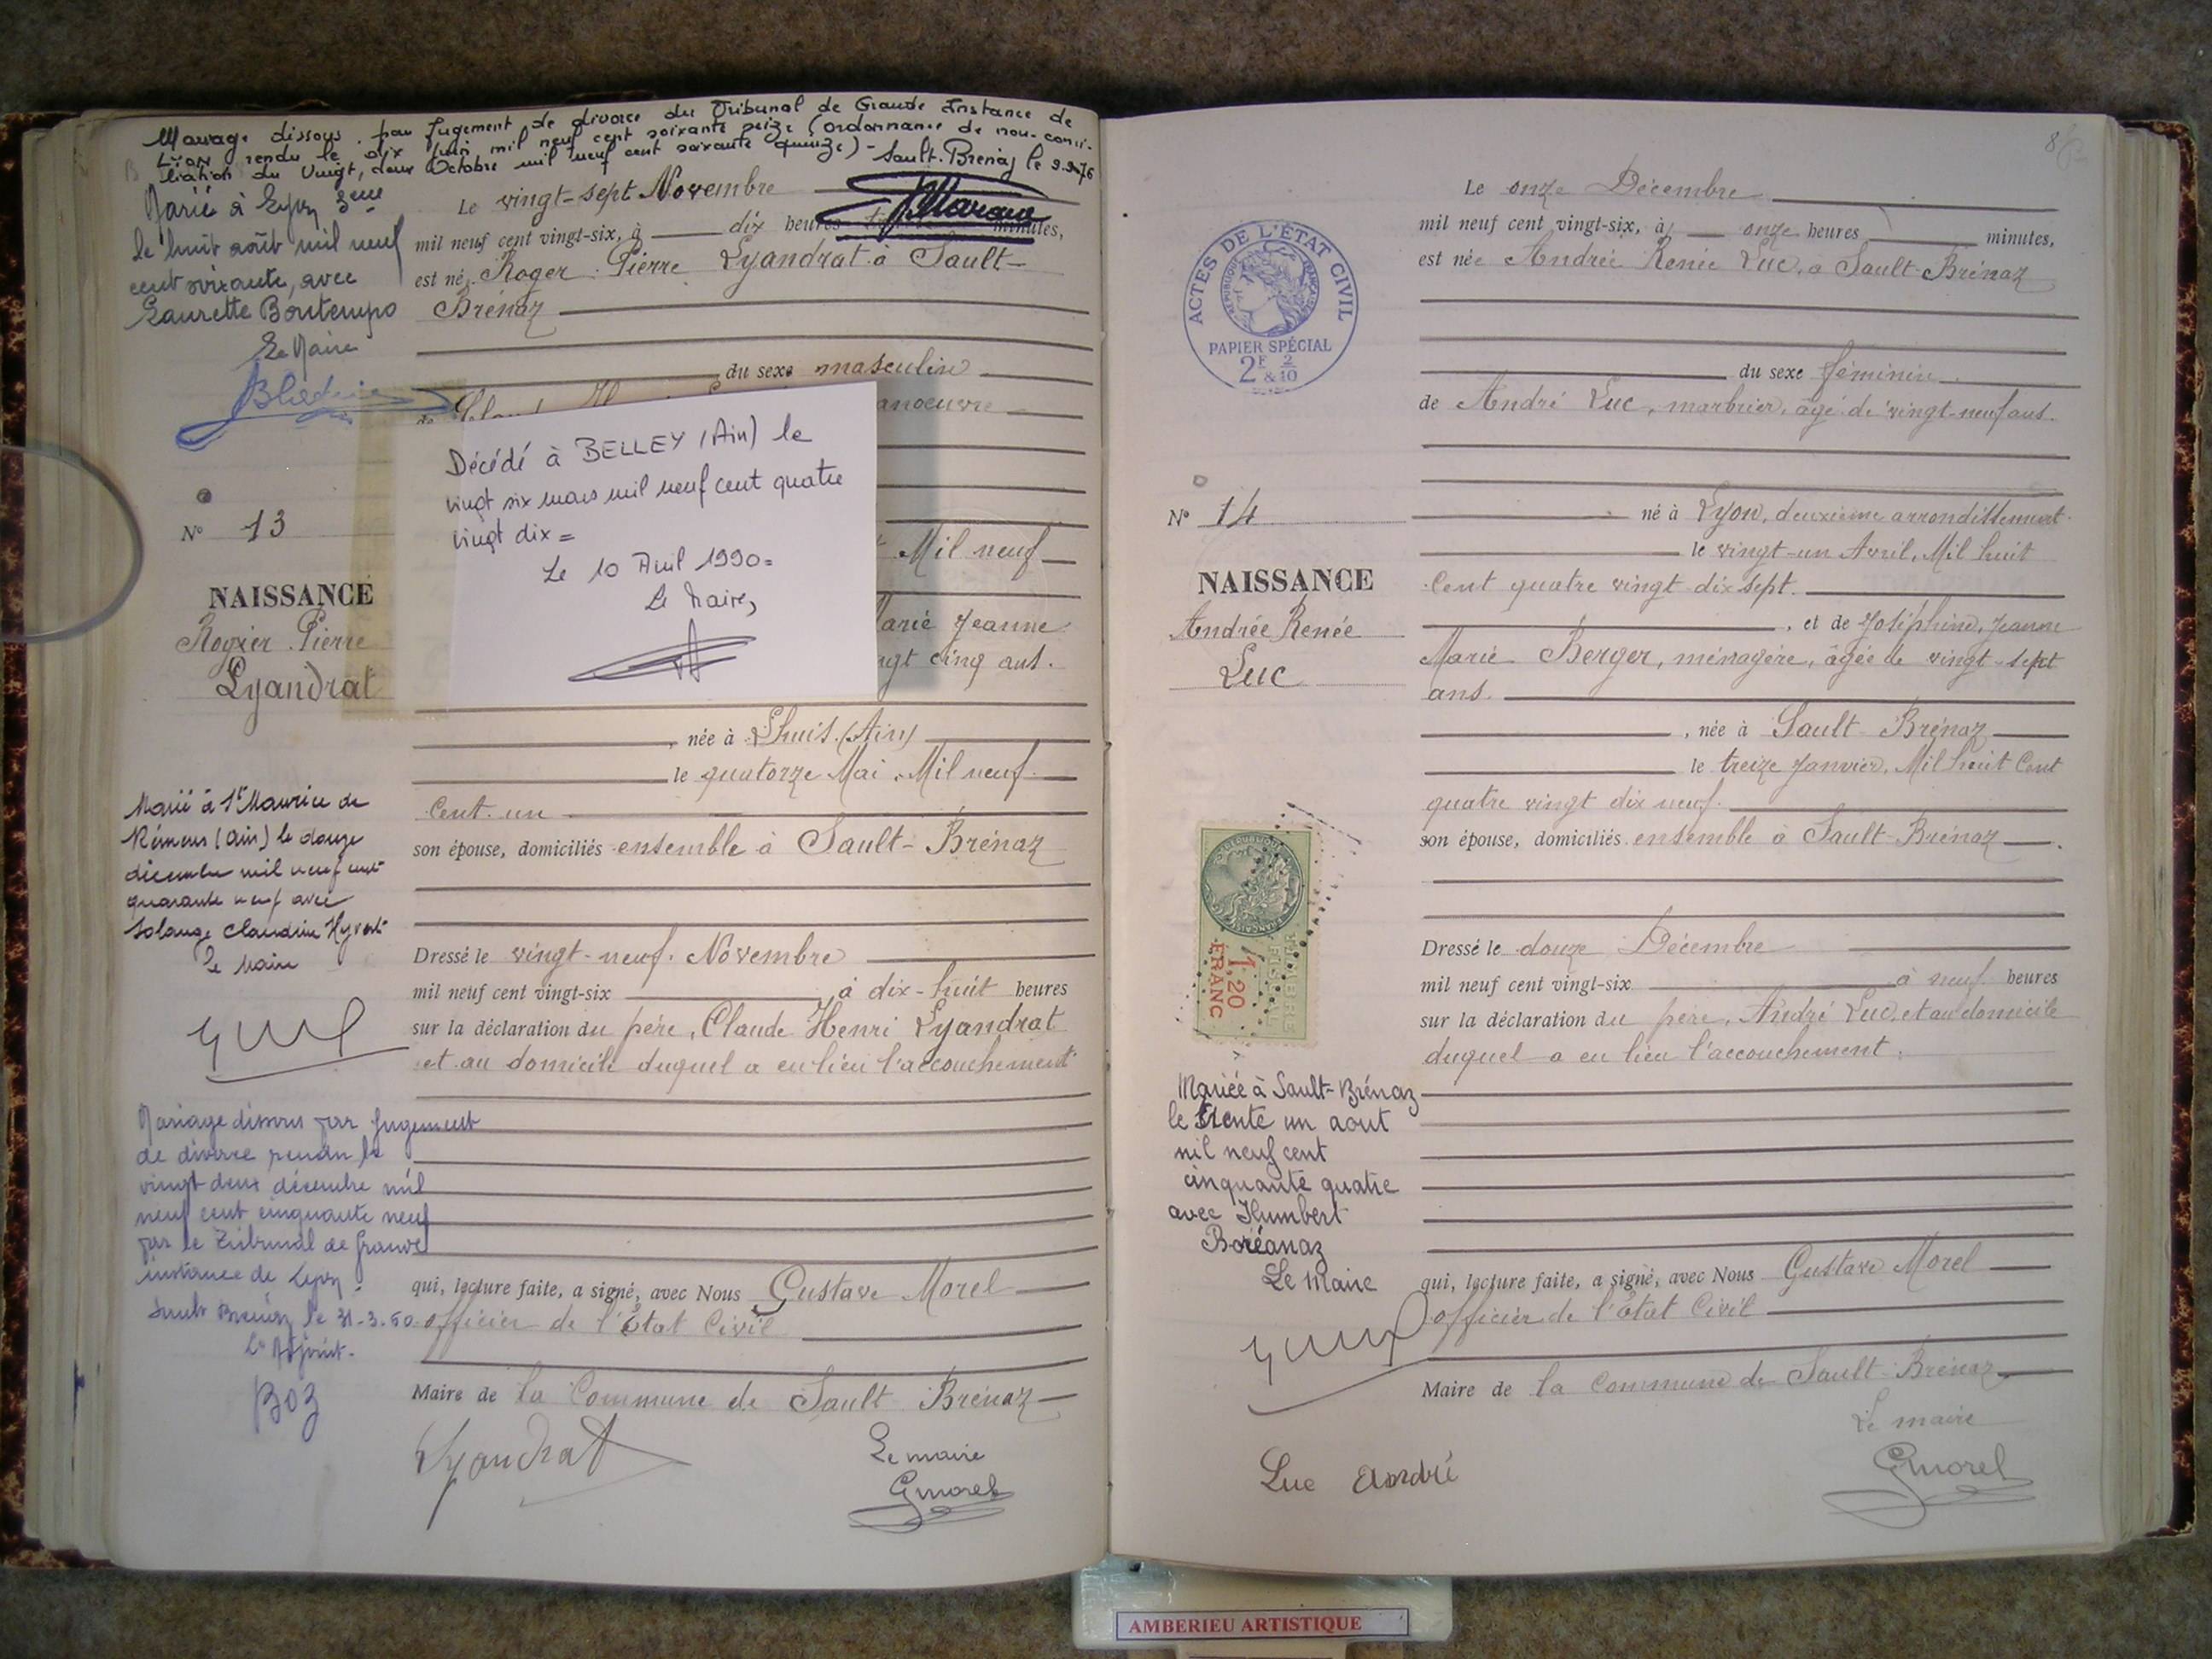 Mariage dissous par Jugement de divorce du Tribunal de Grande Instance de
Lyon rendu le dix Juin mil neuf cent soixante seize (ordonnance de non-conci-
liation du Vingt, deux Octobre mil neuf cent soixante quinze) - Sault-Brenaz le 9.9.76
Marié à Lyon 3eme
le huit août mil neuf
cent soixante, avec
Laurette Bontemps
Le Maire
N° 13
NAISSANCE
Rogier Pierre
Lyandrat
Marié à St Maurice de
Rémens (Ain) le douze
décembre mil neuf cent
quarante neuf avec
Solange Claudine Hyvert
le Maire
Mariage dissous par Jugement
de divorce rendu le
vingt deux décembre mil
neuf cent cinquante neuf
par le Tribunal de Grande
instance de Lyon.
Sault Brenaz le 31-3-60
L'Adjoint-
BOZ
Le vingt-sept Novembre
mil neuf cent vingt-six, à dix heures minutes,
est né Roger Pierre Lyandrat à Sault-
Brénaz
du sexe masculin
de
Décédé à BELLEY (Ain) le
vingt six mars mil neuf cent quatre
vingt dix =
Le 10 Avril 1990 =
Le Maire,
anoeuvre
Mil neuf
Marie Jeanne
ngt cinq ans.
, née à Lhuis (Ain)
le quatorze Mai, Mil neuf
Cent un
son épouse, domiciliés ensemble à Sault-Brénaz
Dressé le vingt-neuf Novembre
mil neuf cent vingt-six à dix-huit heures
sur la déclaration du père, Claude Henri Lyandrat
et au domicile duquel a eu lieu l'accouchement
qui, lecture faite, a signé, avec Nous Gustave Morel
officier de l'État Civil
Maire de la Commune de Sault-Brénaz
Lyandrat
Le maire
Gmorel
8
ACTES DE L'ÉTAT CIVIL
RÉPUBLIQUE FRANÇAISE
PAPIER SPÉCIAL
2F 2
& 10
N° 14
NAISSANCE
Andrée Renée
Luc
TIMBRE
FISCAL
1,20
FRANC
Mariée à Sault-Brénaz
le trente un aout
mil neuf cent
cinquante quatre
avec Humbert
Boréanaz
Le Maire
Le onze Décembre
mil neuf cent vingt-six, à onze heures minutes,
est née Andrée Renée Luc, à Sault-Brénaz
du sexe féminin
de André Luc, marbrier, âgé de vingt-neuf ans.
né à Lyon, deuxième arrondissement
le vingt-un Avril, Mil huit
Cent quatre vingt dix sept.
, et de Joséphine, Jeanne
Marie Berger, ménagère, âgée de vingt-sept
ans.
, née à Sault-Brénaz
le treize Janvier, Mil huit Cent
quatre vingt dix neuf.
son épouse, domiciliés ensemble à Sault-Brénaz
Dressé le douze Décembre
mil neuf cent vingt-six à neuf heures
sur la déclaration du père, André Luc, et au domicile
duquel a eu lieu l'accouchement.
qui, lecture faite, a signé, avec Nous Gustave Morel
officier de l'État Civil
Maire de la Commune de Sault-Brénaz
Le maire
Luc André
Gmorel
AMBERIEU ARTISTIQUE